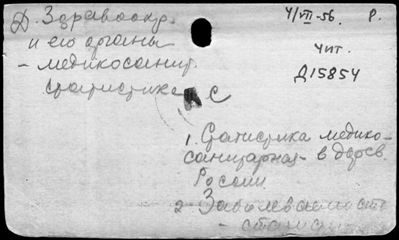 Д. Здравоохр.
и его органы
- медикосанит.
статистика
с
4/VII-56. Р.
Чит.
Д15854
1. Статистика медико-
санитарная - в
России
2 Заболеваемость